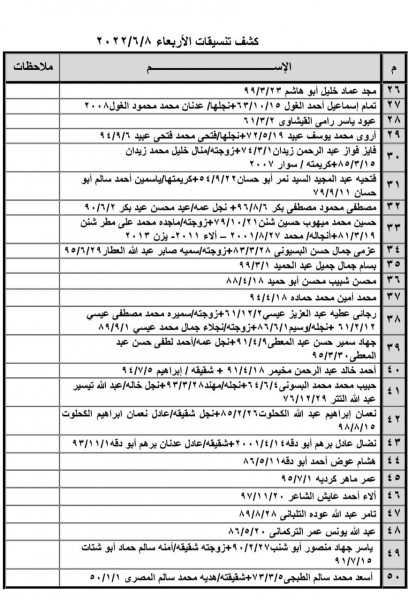 كشف تنسيقات الأربعاء ٢٠٢٢/٦/٨
م الإســـم ملاحظات
٢٦ مجد عماد خليل أبو هاشم ٩٩/٣/٢٣
٢٧ تمام إسماعيل أحمد الغول ٦٣/١٠/١٥+نجلها/ عدنان محمد محمود الغول٢٠٠٨
٢٨ عبود ياسر رامى القيشاوى ٦١/٣/٢
٢٩ أروى محمد يوسف عبيد ٧٢/٥/١٩+نجلها/فتحي محمد فتحى عبيد ٩٤/٩/٦
٣٠ فايز فواز عبد الرحمن زيدان ٧٤/٣/١+زوجته/منال خليل محمد زيدان
٨٥/٣/١٥+كريمته / سوار ٢٠٠٧
٣١ فتحيه عبد المجيد السيد نمر أبو حسان٥٤/٩/٢٢+كريمتها/ياسمين أحمد سالم أبو
حسان ٧٩/٩/١١
٣٢ مصطفى محمود مصطفى بكر ٩٦/٨/٦+ نجل عمه/عيد محسن عيد بكر ٩٠/٦/٢
٣٣ حسين محمد ميهوب حسين شنن٧٩/١٠/٢١+زوجته/ماجده محمد على مطر شنن
٨١/٣/١٩+أنجاله/ محمد ٢٠٠١/٨/٢٧ – ألاء ٢٠١١- يزن ٢٠١٣
٣٤ عزمى جمال حسن البسيونى ٨٣/٣/٢٨+زوجته/سميه صابر عبد الله العطار٩٥/٦/٢٩
٣٥ بسام جمال جميل عبد الحميد ٩٩/٣/١
٣٦ محسن شبيب محسن أبو حميد ٨٨/٤/١٨
٣٧ محمد أمين محمد حماده ٩٤/٤/١٨
٣٨ رجائى عطيه عبد العزيز عيسي٦١/١٢/٢+زوجته/سميره محمد مصطفى عيسي
٦١/٢/١٢ +نجله/وسيم٨٦/٦/١+زوجته/نجلاء جمال محمد عيسي ٨٩/٩/١
٣٩ جهاد سمير حسن عبد المعطي٩١/٤/٩+نجل عمه/أحمد لطفى حسن عبد
المعطي٩٥/٣/٣٠
٤٠ أحمد خالد عبد الرحمن مخيمر ٩١/٤/١٨ + شقيقه / إبراهيم ٩٤/٧/٥
٤١ حبيب محمد محمد البسونى٦٤/٦/٤+نجله/مهند٩٣/٣/٢٨+نجل خاله/عبد الله تيسير
عبد الله التتر ٧٦/١٢/٢٩
٤٢ نعمان إبراهيم عبد الله الكحلوت٨٥/٢/٢٦+نجل شقيقه/عادل نعمان ابراهيم الكحلوت
٩٨/٨/١٥
٤٣ نضال عادل برهم أبو دقه٢٠٠١/٤/١٤+شقيقه/عدنان عادل برهم أبو دقه ٩٣/١١/١
٤٤ هشام عوض أحمد أبو دقه ٨٦/٥/١١
٤٥ عمر ماهر كرديه ٩٥/٧/١
٤٦ ألاء أحمد عايش الشاعر ٩٧/١١/٢٠
٤٧ تامر عبد الله عوده التلبانى ٨٩/٨/٢٨
٤٨ عبد الله يونس عمر التركمانى ٨٦/٥/٢٠
٤٩ ياسر جهاد منصور أبو شنب٩٠/٢/٢٧+زوجته شقيقه/آمنه سالم حماد أبو شتات
٩١/٧/١٥
٥٠ أسعد محمد سالم الطبجي٧٣/٣/٥+شقيقته/هديه محمد سالم المصرى ٥٠/١/١